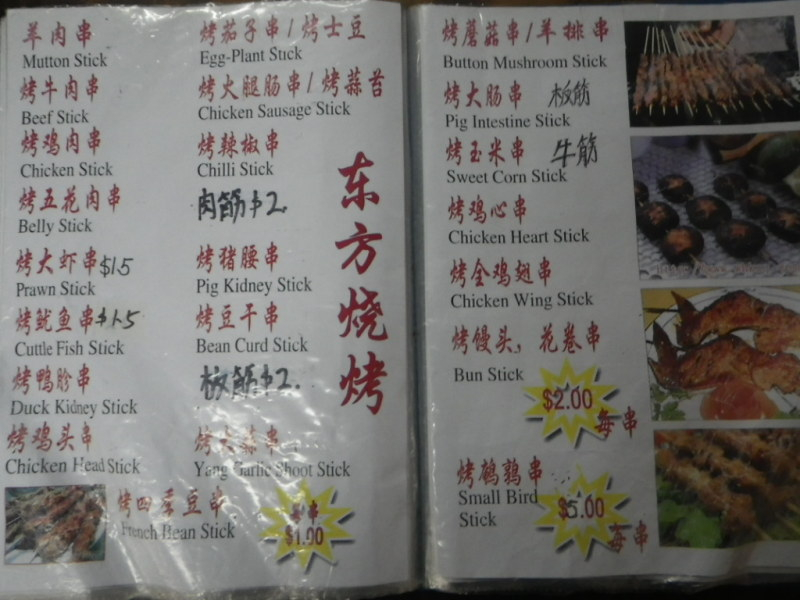 羊肉串
Mutton Stick
烤牛肉串
Beef Stick
烤鸡肉串
Chicken Stick
烤五花肉串
Belly Stick
烤大虾串$1.5
Prawn Stick
烤鱿鱼串$1.5
Cuttle Fish Stick
烤鸭胗串
Duck Kidney Stick
烤鸡头串
Chicken Head Stick
烤四季豆串
French Bean Stick
烤茄子串/烤土豆
Egg-Plant Stick
烤火腿肠串/烤蒜苔
Chicken Sausage Stick
烤辣椒串
Chilli Stick
肉筋$2.
烤猪腰串
Pig Kidney Stick
烤豆干串
Bean Curd Stick
板筋$2.
烤大蒜串
Yang Garlic Shoot Stick
每串
$1.00
东方烧烤
烤蘑菇串/羊排串
Button Mushroom Stick
烤大肠串 板筋
Pig Intestine Stick
烤玉米串 牛筋
Sweet Corn Stick
烤鸡心串
Chicken Heart Stick
烤全鸡翅串
Chicken Wing Stick
烤馒头，花卷串
Bun Stick
$2.00
每串
烤鹌鹑串
Small Bird
Stick
$5.00
每串